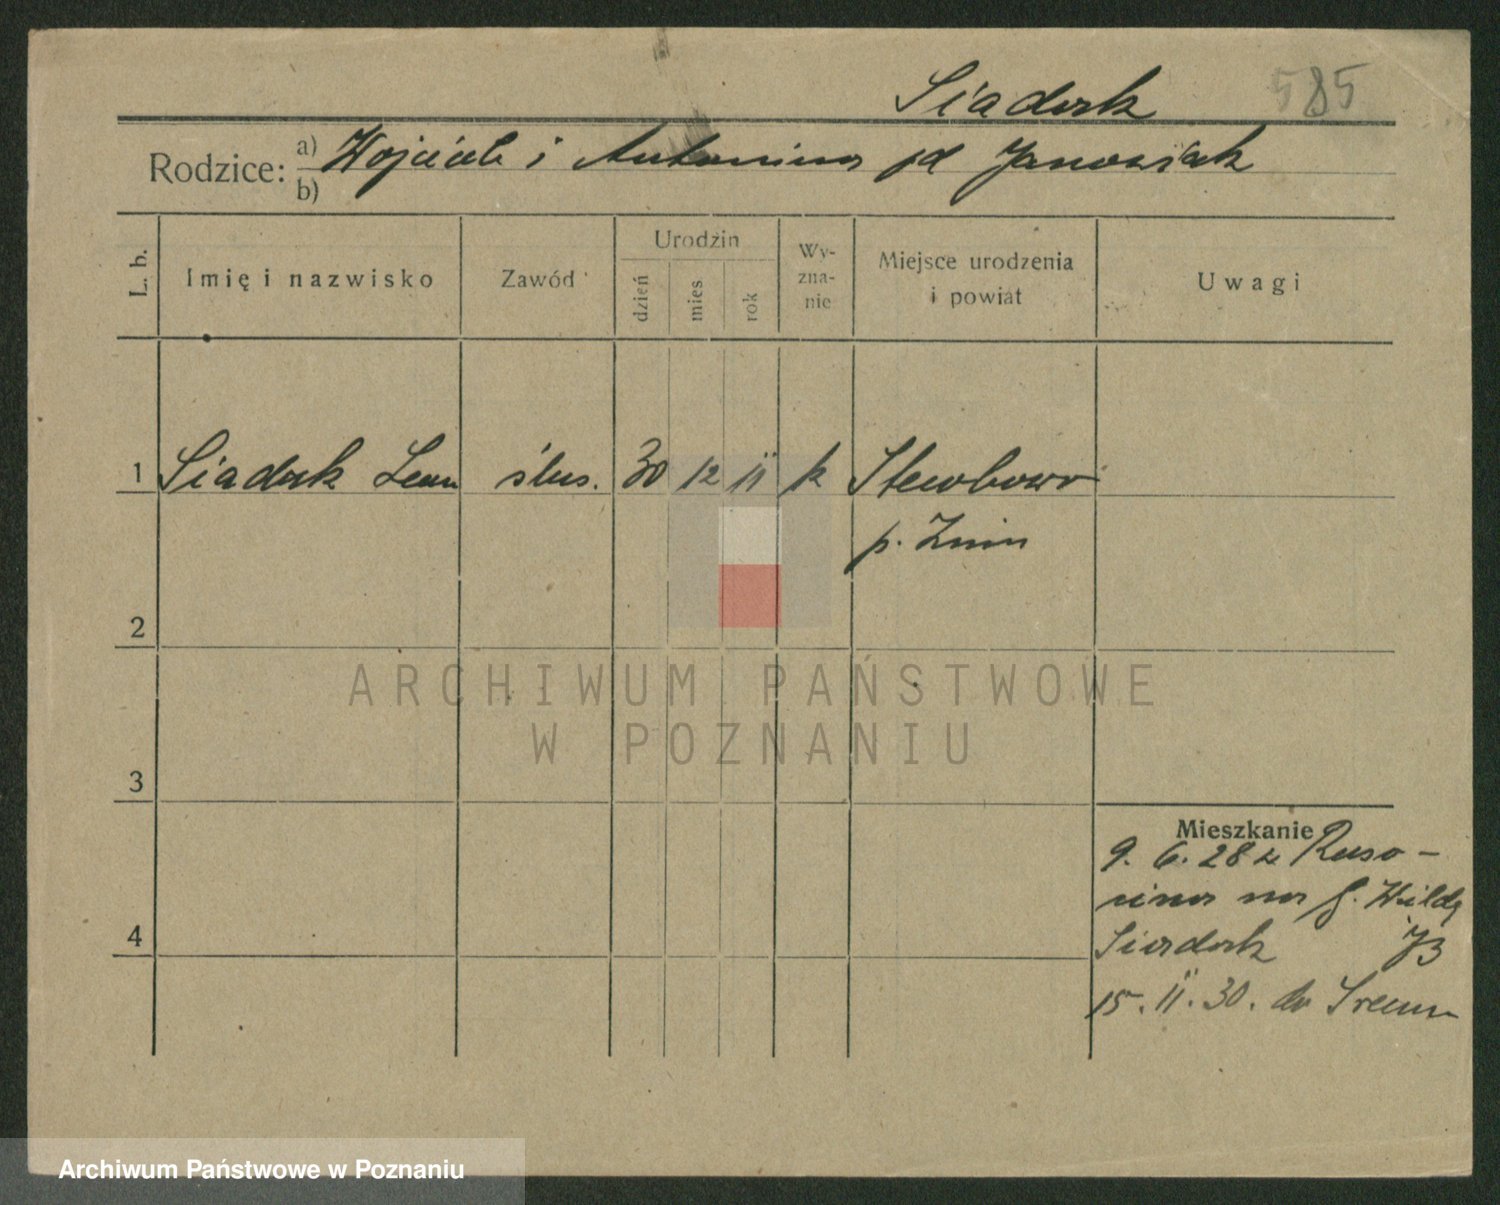 Siadak
585
Rodzice: a) Wojciech i Antonina jd Janowiak
b)
L. b.
Imię i nazwisko
Zawód
Urodzin
dzień
mies
rok
Wy-
zna-
nie
Miejsce urodzenia
i powiat
Uwagi
1 Siadak Leon ślus. 30 12 11 k
p. Żnin
2
3
4
Mieszkanie
9. 6. 28 z Ruso-
cina na G. Wildę
Siadak 73
15. 11. 30. do Sremu
ARCHIWUM PAŃSTWOWE
W POZNANIU
Archiwum Państwowe w Poznaniu